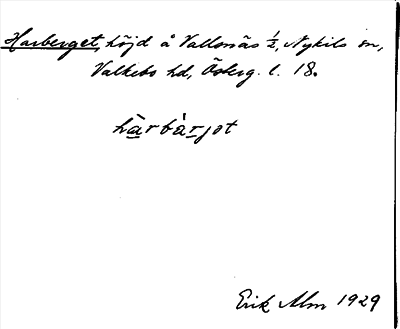 Harberget, höjd å Vallonäs ½, Nykils sn,
Valkebo hd, Österg. l. 18.
hàrbàrjot
Erik Alm 1929